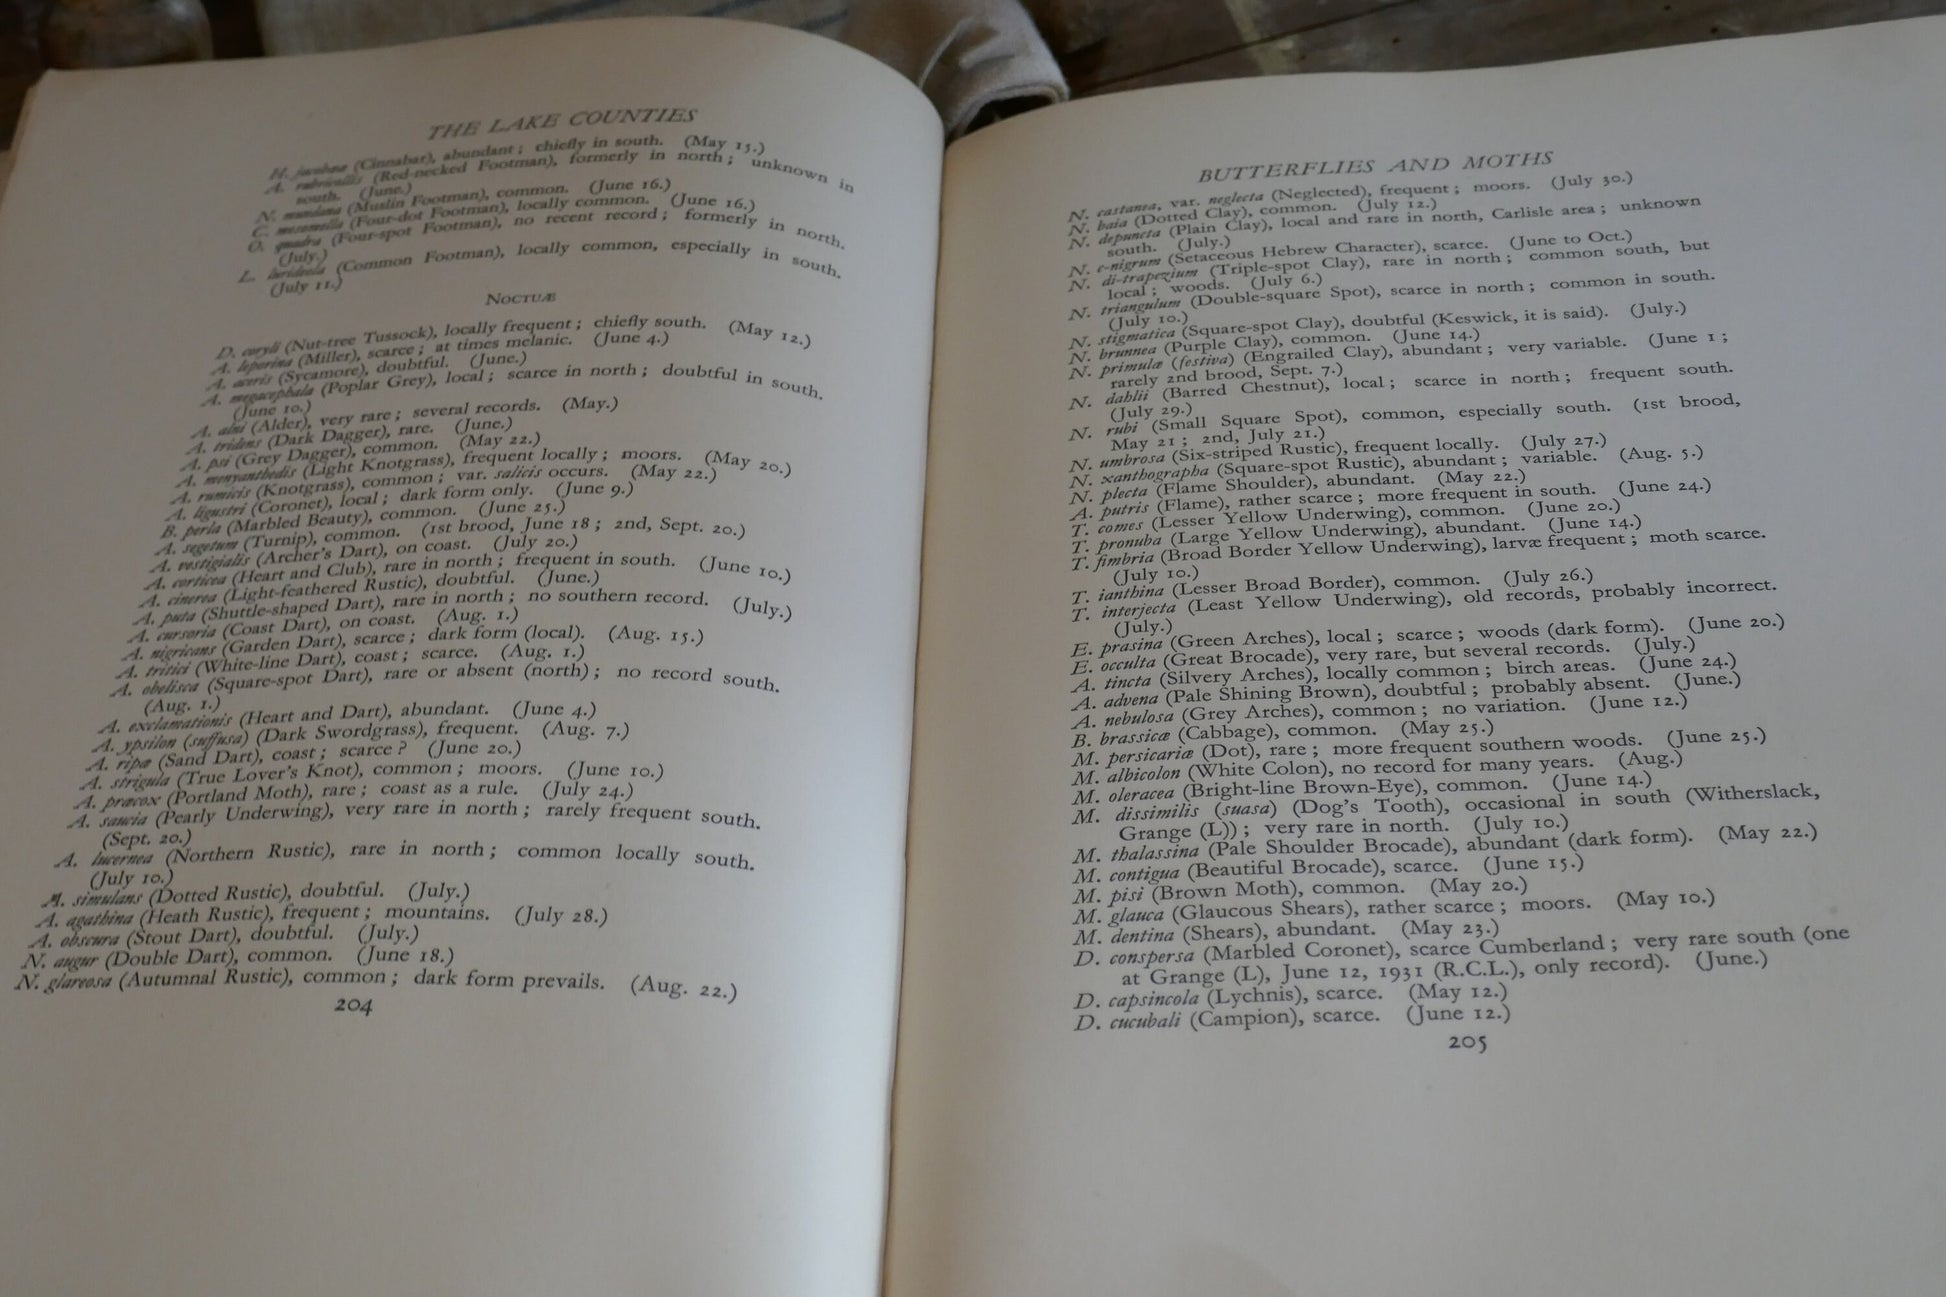 THE LAKE COUNTIES
H. jacobææ (Cinnabar), abundant; chiefly in south. (May 15.)
A. rubricollis (Red-necked Footman), formerly in north; unknown in
south. (June.)
N. mundana (Muslin Footman), common. (June 16.)
C. mesomella (Four-dot Footman), locally common. (June 16.)
O. quadra (Four-spot Footman), no recent record; formerly in north.
(July.)
L. lurideola (Common Footman), locally common, especially in south.
(July 11.)
NOCTUÆ
D. coryli (Nut-tree Tussock), locally frequent; chiefly south. (May 12.)
A. leporina (Miller), scarce; at times melanic. (June 4.)
A. aceris (Sycamore), doubtful. (June.)
A. megacephala (Poplar Grey), local; scarce in north; doubtful in south.
(June 10.)
A. alni (Alder), very rare; several records. (May.)
A. tridens (Dark Dagger), rare. (June.)
A. psi (Grey Dagger), common. (May 22.)
A. menyanthedis (Light Knotgrass), frequent locally; moors. (May 20.)
A. rumicis (Knotgrass), common; var. salicis occurs. (May 22.)
A. ligustri (Coronet), local; dark form only. (June 9.)
B. perla (Marbled Beauty), common. (June 25.)
A. segetum (Turnip), common. (1st brood, June 18; 2nd, Sept. 20.)
A. vestigialis (Archer's Dart), on coast. (July 20.)
A. corticea (Heart and Club), rare in north; frequent in south. (June 10.)
A. cinerea (Light-feathered Rustic), doubtful. (June.)
A. puta (Shuttle-shaped Dart), rare in north; no southern record. (July.)
A. cursoria (Coast Dart), on coast. (Aug. 1.)
A. nigricans (Garden Dart), scarce; dark form (local). (Aug. 15.)
A. tritici (White-line Dart), coast; scarce. (Aug. 1.)
A. obelisca (Square-spot Dart), rare or absent (north); no record south.
(Aug. 1.)
A. exclamationis (Heart and Dart), abundant. (June 4.)
A. ypsilon (suffusa) (Dark Swordgrass), frequent. (Aug. 7.)
A. ripæ (Sand Dart), coast; scarce? (June 20.)
A. strigula (True Lover's Knot), common; moors. (June 10.)
A. præcox (Portland Moth), rare; coast as a rule. (July 24.)
A. saucia (Pearly Underwing), very rare in north; rarely frequent south.
(Sept. 20.)
A. lucernea (Northern Rustic), rare in north; common locally south.
(July 10.)
A. simulans (Dotted Rustic), doubtful. (July.)
A. agathina (Heath Rustic), frequent; mountains. (July 28.)
A. obscura (Stout Dart), doubtful. (July.)
N. augur (Double Dart), common. (June 18.)
N. glareosa (Autumnal Rustic), common; dark form prevails. (Aug. 22.)
204
BUTTERFLIES AND MOTHS
N. castanea, var. neglecta (Neglected), frequent; moors. (July 30.)
N. baia (Dotted Clay), common. (July 12.)
N. depuncta (Plain Clay), local and rare in north, Carlisle area; unknown
south. (July.)
N. c-nigrum (Setaceous Hebrew Character), scarce. (June to Oct.)
N. di-trapezium (Triple-spot Clay), rare in north; common south, but
local; woods. (July 6.)
N. triangulum (Double-square Spot), scarce in north; common in south.
(July 10.)
N. stigmatica (Square-spot Clay), doubtful (Keswick, it is said). (July.)
N. brunnea (Purple Clay), common. (June 14.)
N. primulæ (festiva) (Engrailed Clay), abundant; very variable. (June 1;
rarely 2nd brood, Sept. 7.)
N. dahlii (Barred Chestnut), local; scarce in north; frequent south.
(July 29.)
N. rubi (Small Square Spot), common, especially south. (1st brood,
May 21; 2nd, July 21.)
N. umbrosa (Six-striped Rustic), frequent locally. (July 27.)
N. xanthographa (Square-spot Rustic), abundant; variable. (Aug. 5.)
N. plecta (Flame Shoulder), abundant. (May 22.)
A. putris (Flame), rather scarce; more frequent in south. (June 24.)
T. comes (Lesser Yellow Underwing), common. (June 20.)
T. pronuba (Large Yellow Underwing), abundant. (June 14.)
T. fimbria (Broad Border Yellow Underwing), larvæ frequent; moth scarce.
(July 10.)
T. ianthina (Lesser Broad Border), common. (July 26.)
T. interjecta (Least Yellow Underwing), old records, probably incorrect.
(July.)
E. prasina (Green Arches), local; scarce; woods (dark form). (June 20.)
E. occulta (Great Brocade), very rare, but several records. (July.)
A. tincta (Silvery Arches), locally common; birch areas. (June 24.)
A. advena (Pale Shining Brown), doubtful; probably absent. (June.)
A. nebulosa (Grey Arches), common; no variation. (June 12.)
B. brassicæ (Cabbage), common. (May 25.)
M. persicariæ (Dot), rare; more frequent southern woods. (June 25.)
M. albicolon (White Colon), no record for many years. (Aug.)
M. oleracea (Bright-line Brown-Eye), common. (June 14.)
M. dissimilis (suasa) (Dog's Tooth), occasional in south (Witherslack,
Grange (L)); very rare in north. (July 10.)
M. thalassina (Pale Shoulder Brocade), abundant (dark form). (May 22.)
M. contigua (Beautiful Brocade), scarce. (June 15.)
M. pisi (Brown Moth), common. (May 20.)
M. glauca (Glaucous Shears), rather scarce; moors. (May 10.)
M. dentina (Shears), abundant. (May 23.)
D. conspersa (Marbled Coronet), scarce Cumberland; very rare south (one
at Grange (L), June 12, 1931 (R.C.L.), only record). (June.)
D. capsincola (Lychnis), scarce. (May 12.)
D. cucubali (Campion), scarce. (June 12.)
205